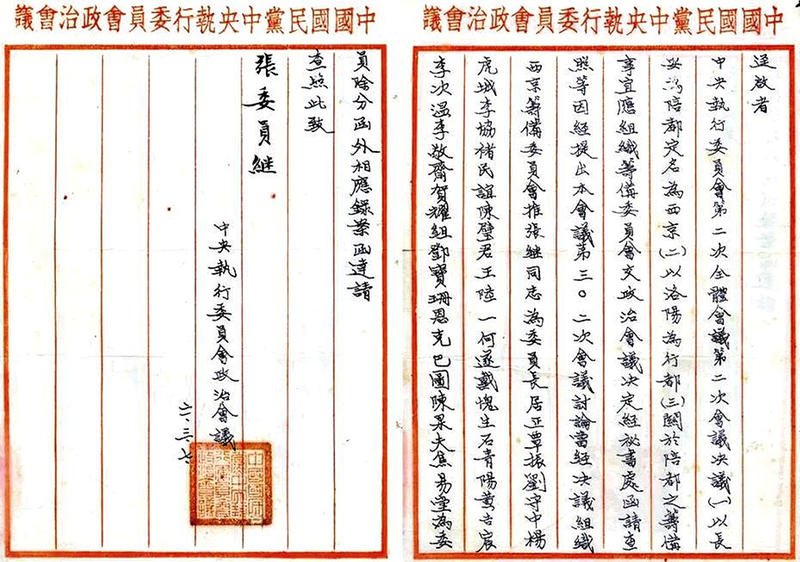 中國國民黨中央執行委員會政治會議
逕啟者
中央執行委員會第二次全體會議第二次會議決議(一)以長
安為陪都定名為西京(二)以洛陽為行都(三)關於陪都之籌備
事宜應組織籌備委員會交政治會議決定經祕書處函請查
照等因經提出本會議第三〇二次會議討論當經決議組織
西京籌備委員會推張繼同志為委員長居正覃振劉守中楊
虎城李協褚民誼陳璧君王陸一何遂戴愧生石青陽黃吉宸
李次溫李敬齋賀耀組鄧寶珊恩克巴圖陳果夫焦易堂為委
中國國民黨中央執行委員會政治會議
員除分函外相應錄案函達請
查照此致
張委員繼
中央執行委員會政治會議
三、七